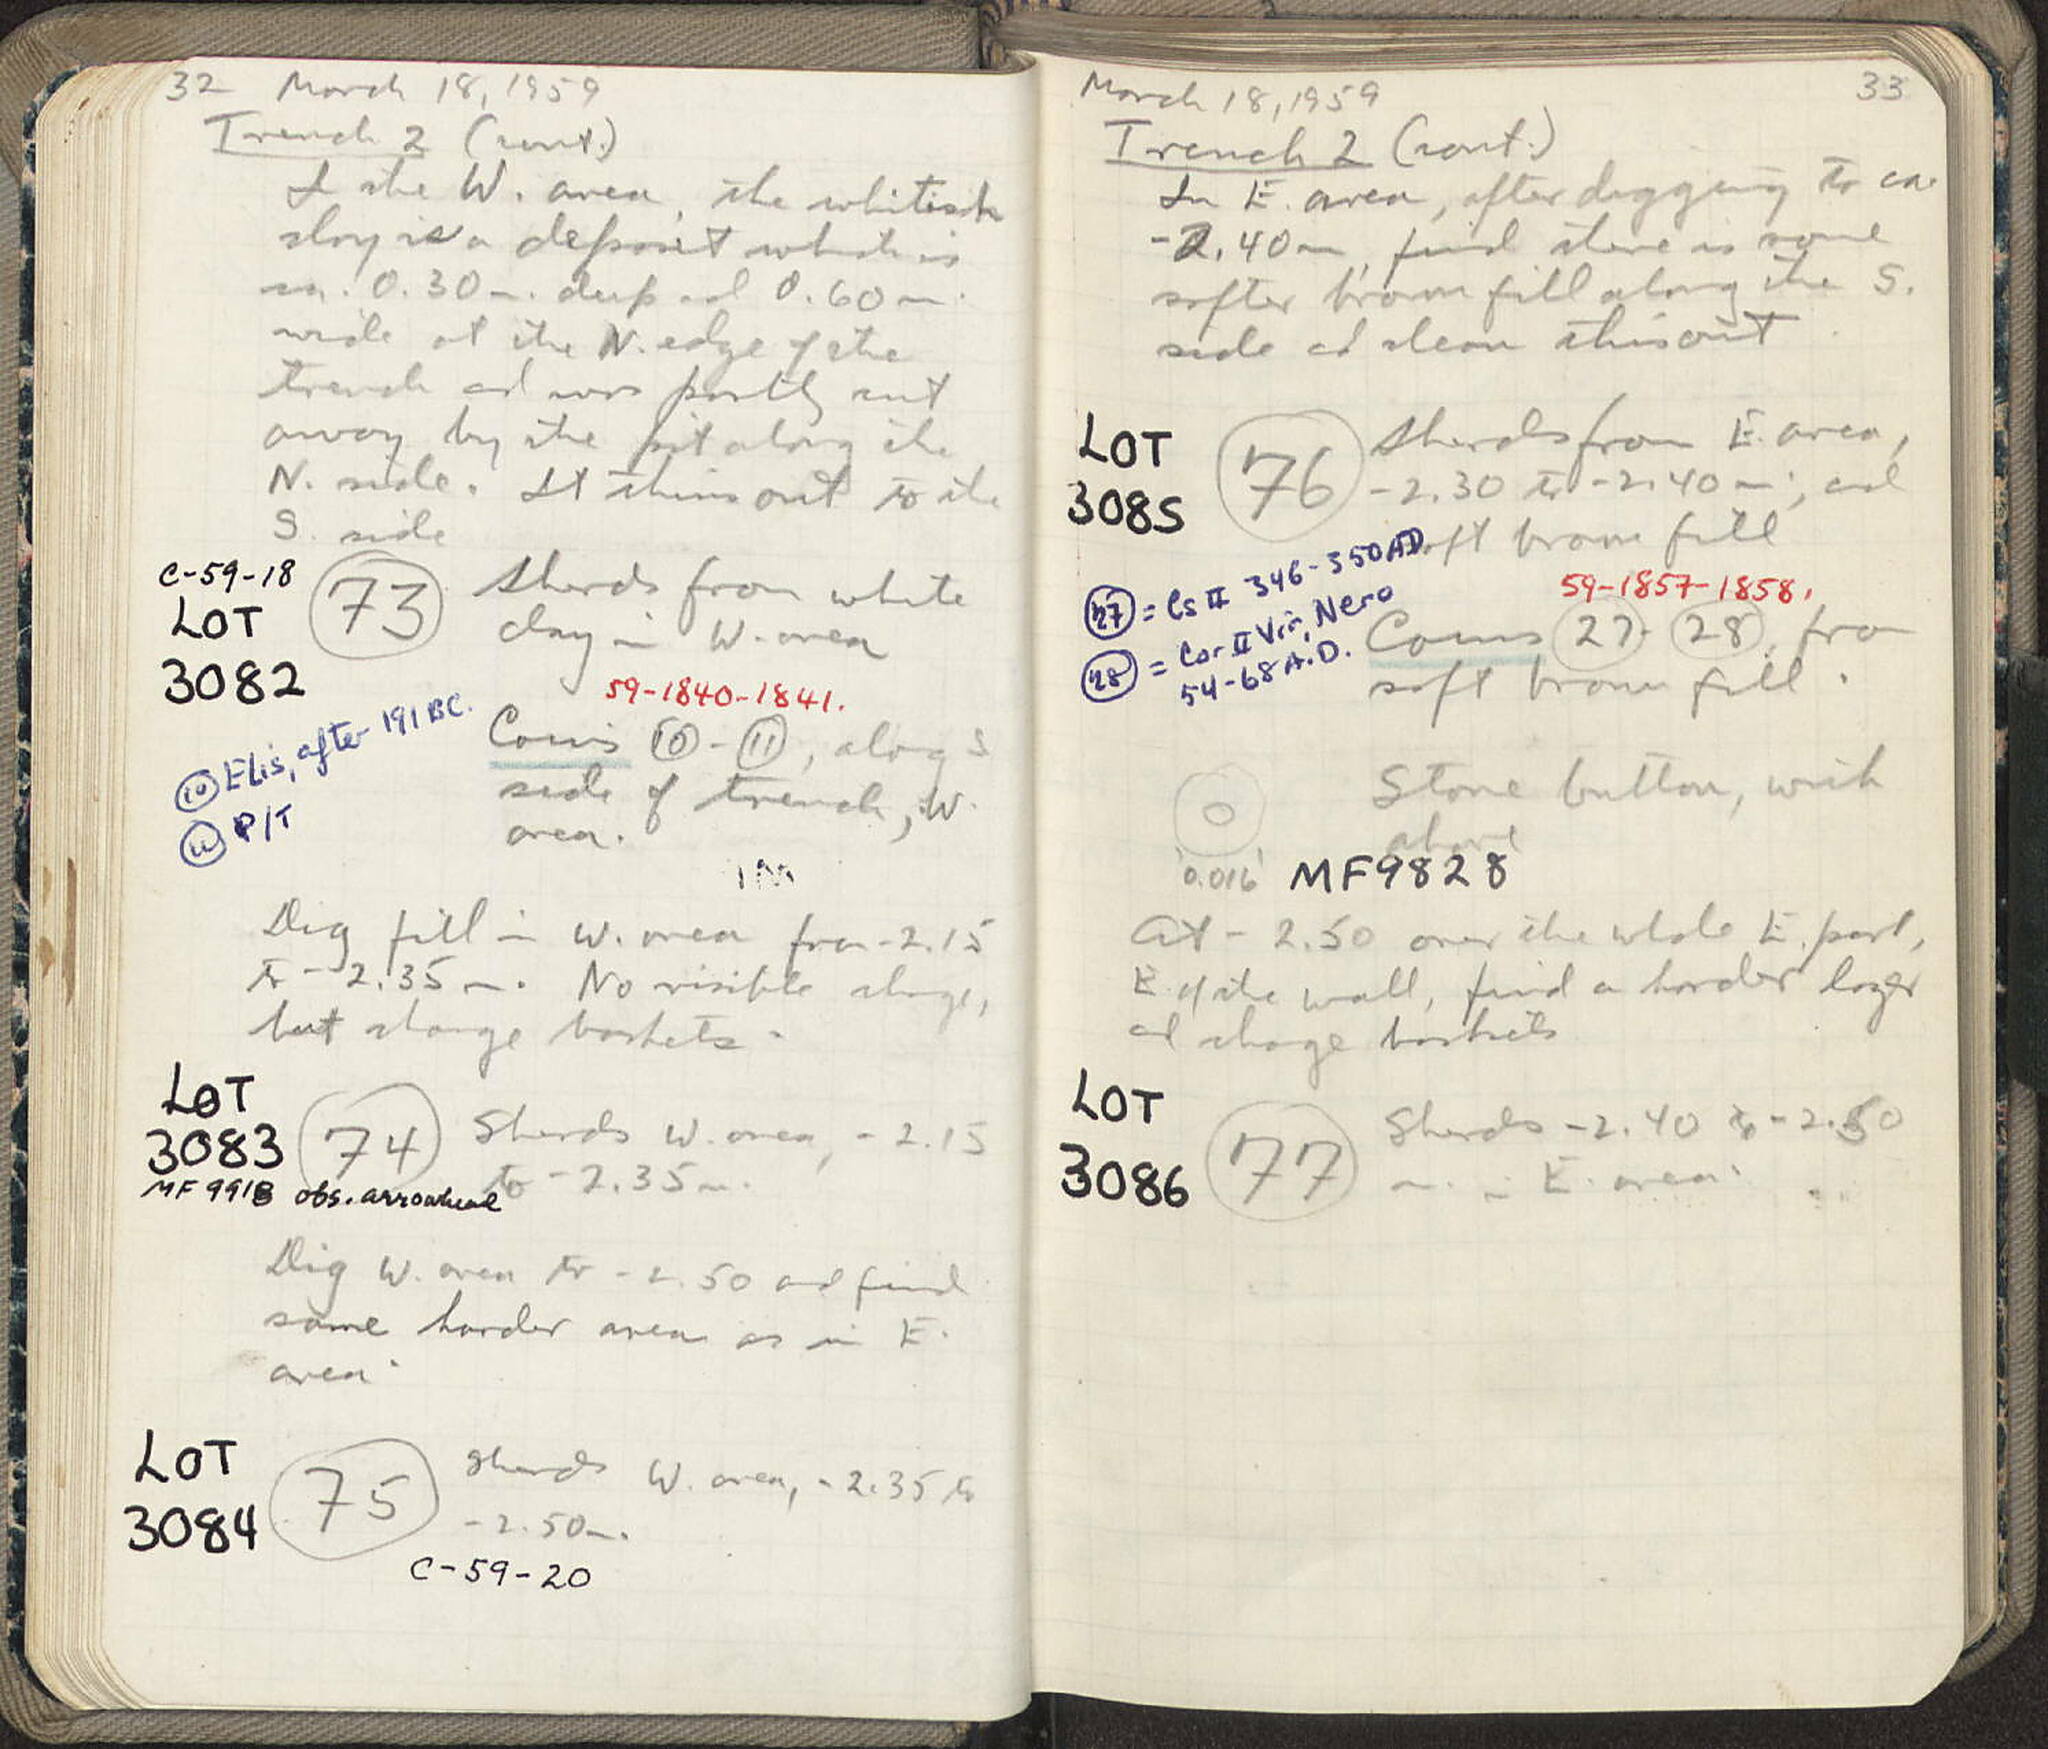 32 March 18, 1959
Trench 2 (cont.)
In the W. area, the whitish
clay is a deposit which is
ca. 0.30 m. deep and 0.60 m.
wide at the N. edge of the
trench and was partly cut
away by the pit along the
N. side. It thins out to the
S. side
C-59-18
LOT
3082
73
Sherds from white
clay in W. area
59-1840-1841.
Coins 10 - 11, along S
side of trench, W.
area.
10 Elis, after 191 BC.
11 P/T
Dig fill in W. area from -2.15
to -2.35 m. No visible change,
but change baskets.
LOT
3083
74
Sherds W. area, -2.15
to -2.35 m.
MF 9918 obs. arrowhead
Dig W. area to -2.50 and find
same harder area as in E.
area.
LOT
3084
75
Sherds W. area, -2.35 to
-2.50 m.
C-59-20
March 18, 1959 33
Trench 2 (cont.)
In E. area, after digging to ca.
-2.40 m, find there is some
softer brown fill along the S.
side and clean this out
LOT
3085
76
Sherds from E. area,
-2.30 to -2.40 m., and
soft brown fill
59-1857-1858.
27 = Cs II 346-350 AD
28 = Cor II Vir, Nero
54-68 A.D.
Coins 27 - 28, from
soft brown fill.
Stone button, with
above
0.016
MF9828
At -2.50 over the whole E. part,
E. of the wall, find a harder layer
and change baskets
LOT
3086
77
Sherds -2.40 to -2.50
m. in E. area.